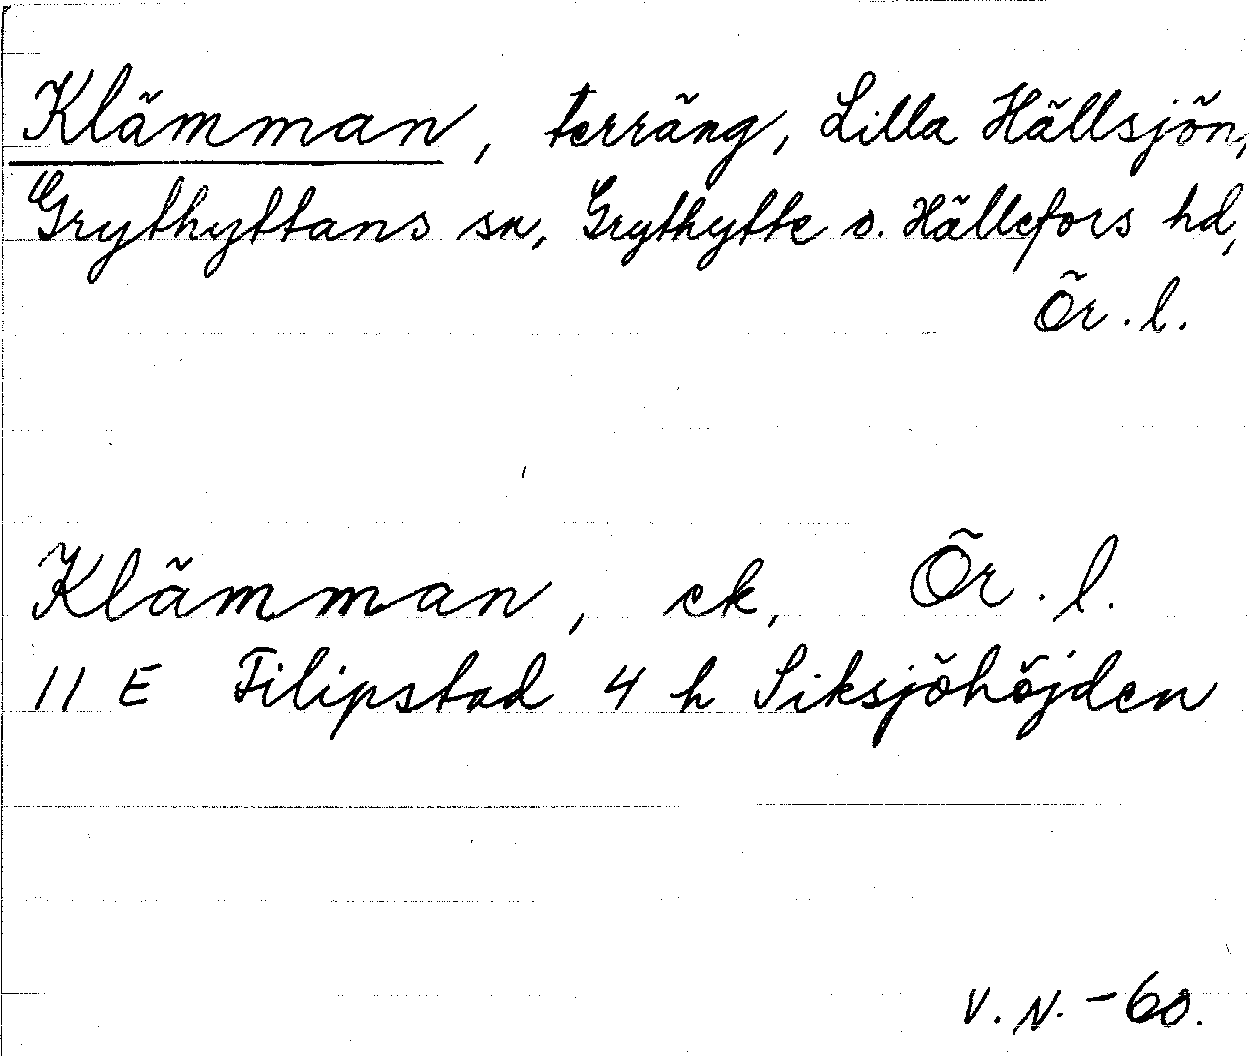 Klämman, terräng, Lilla Hällsjön,
Grythyttans sn, Grythytte o. Hällefors hd,
Ör. l.
Klämman, ek, Ör. l.
11 E Filipstad 4 h Siksjöhöjden
V. N. -60.